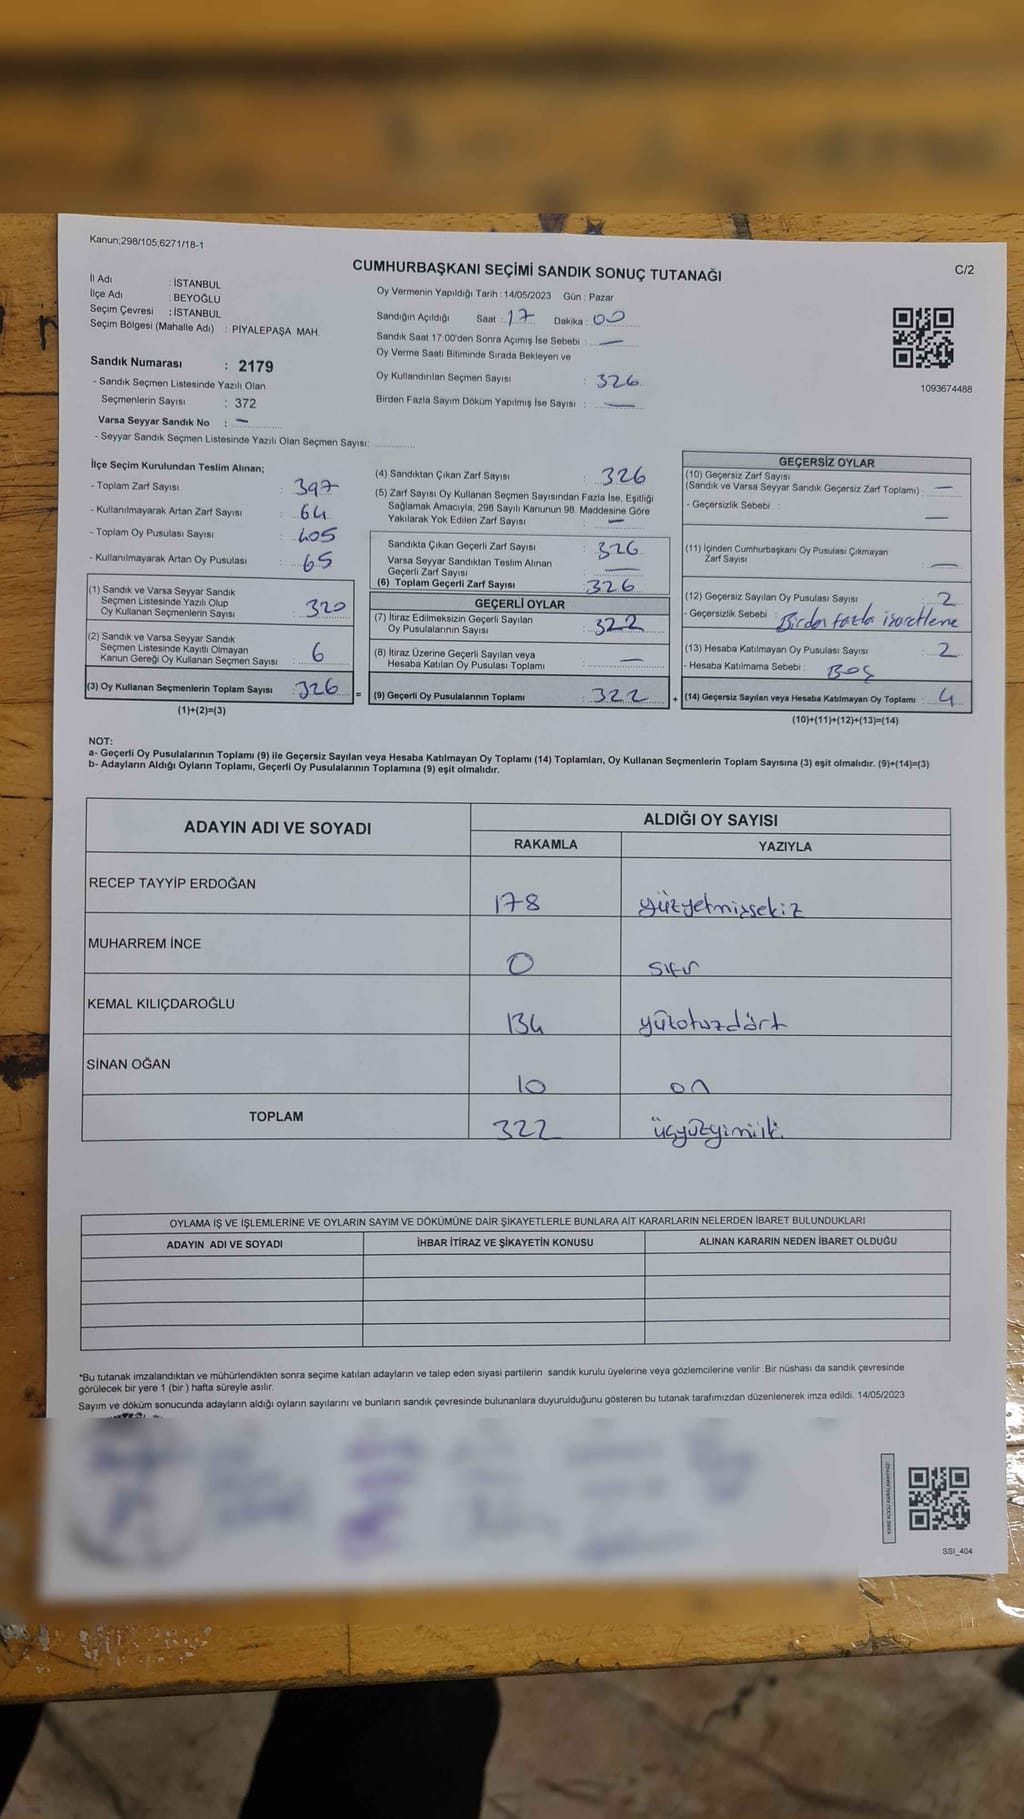 Kanun;298/105;6271/18-1
CUMHURBAŞKANI SEÇİMİ SANDIK SONUÇ TUTANAĞI
C/2
İl Adı : İSTANBUL
İlçe Adı : BEYOĞLU
Seçim Çevresi : İSTANBUL
Seçim Bölgesi (Mahalle Adı) : PİYALEPAŞA MAH.
Sandık Numarası : 2179
- Sandık Seçmen Listesinde Yazılı Olan
Seçmenlerin Sayısı : 372
Varsa Seyyar Sandık No : —
- Seyyar Sandık Seçmen Listesinde Yazılı Olan Seçmen Sayısı:
Oy Vermenin Yapıldığı Tarih : 14/05/2023 Gün : Pazar
Sandığın Açıldığı Saat : 17 Dakika : 00
Sandık Saat 17:00'den Sonra Açımış İse Sebebi : —
Oy Verme Saati Bitiminde Sırada Bekleyen ve
Oy Kullandırılan Seçmen Sayısı : 326
Birden Fazla Sayım Döküm Yapılmış İse Sayısı : —
1093674488
İlçe Seçim Kurulundan Teslim Alınan;
- Toplam Zarf Sayısı : 397
- Kullanılmayarak Artan Zarf Sayısı : 64
- Toplam Oy Pusulası Sayısı : 405
- Kullanılmayarak Artan Oy Pusulası : 65
(1) Sandık ve Varsa Seyyar Sandık
Seçmen Listesinde Yazılı Olup
Oy Kullanan Seçmenlerin Sayısı : 320
(2) Sandık ve Varsa Seyyar Sandık
Seçmen Listesinde Kayıtlı Olmayan
Kanun Gereği Oy Kullanan Seçmen Sayısı : 6
(3) Oy Kullanan Seçmenlerin Toplam Sayısı : 326
(1)+(2)=(3)
(4) Sandıktan Çıkan Zarf Sayısı : 326
(5) Zarf Sayısı Oy Kullanan Seçmen Sayısından Fazla İse, Eşitliği
Sağlamak Amacıyla; 298 Sayılı Kanunun 98. Maddesine Göre
Yakılarak Yok Edilen Zarf Sayısı : —
Sandıkta Çıkan Geçerli Zarf Sayısı : 326
Varsa Seyyar Sandıktan Teslim Alınan
Geçerli Zarf Sayısı : —
(6) Toplam Geçerli Zarf Sayısı : 326
GEÇERLİ OYLAR
(7) İtiraz Edilmeksizin Geçerli Sayılan
Oy Pusulalarının Sayısı : 322
(8) İtiraz Üzerine Geçerli Sayılan veya
Hesaba Katılan Oy Pusulası Toplamı : —
= (9) Geçerli Oy Pusulalarının Toplamı : 322
GEÇERSİZ OYLAR
(10) Geçersiz Zarf Sayısı
(Sandık ve Varsa Seyyar Sandık Geçersiz Zarf Toplamı) : —
- Geçersizlik Sebebi : —
(11) İçinden Cumhurbaşkanı Oy Pusulası Çıkmayan
Zarf Sayısı : —
(12) Geçersiz Sayılan Oy Pusulası Sayısı : 2
- Geçersizlik Sebebi : Birden fazla işaretleme
(13) Hesaba Katılmayan Oy Pusulası Sayısı : 2
- Hesaba Katılmama Sebebi : Boş
+ (14) Geçersiz Sayılan veya Hesaba Katılmayan Oy Toplamı : 4
(10)+(11)+(12)+(13)=(14)
NOT:
a- Geçerli Oy Pusulalarının Toplamı (9) ile Geçersiz Sayılan veya Hesaba Katılmayan Oy Toplamı (14) Toplamları, Oy Kullanan Seçmenlerin Toplam Sayısına (3) eşit olmalıdır. (9)+(14)=(3)
b- Adayların Aldığı Oyların Toplamı, Geçerli Oy Pusulalarının Toplamına (9) eşit olmalıdır.
ADAYIN ADI VE SOYADI
ALDIĞI OY SAYISI
RAKAMLA YAZIYLA
RECEP TAYYİP ERDOĞAN 178 yüzyetmişsekiz
MUHARREM İNCE 0 sıfır
KEMAL KILIÇDAROĞLU 134 yüzotuzdört
SİNAN OĞAN 10 on
TOPLAM 322 üçyüzyirmiiki
OYLAMA İŞ VE İŞLEMLERİNE VE OYLARIN SAYIM VE DÖKÜMÜNE DAİR ŞİKAYETLERLE BUNLARA AİT KARARLARIN NELERDEN İBARET BULUNDUKLARI
ADAYIN ADI VE SOYADI İHBAR İTİRAZ VE ŞİKAYETİN KONUSU ALINAN KARARIN NEDEN İBARET OLDUĞU
*Bu tutanak imzalandıktan ve mühürlendikten sonra seçime katılan adayların ve talep eden siyasi partilerin sandık kurulu üyelerine veya gözlemcilerine verilir .Bir nüshası da sandık çevresinde
görülecek bir yere 1 (bir ) hafta süreyle asılır.
Sayım ve döküm sonucunda adayların aldığı oyların sayılarını ve bunların sandık çevresinde bulunanlara duyurulduğunu gösteren bu tutanak tarafımızdan düzenlenerek imza edildi. 14/05/2023
KARE KODU KARALAMAYINIZ!
SSI_404